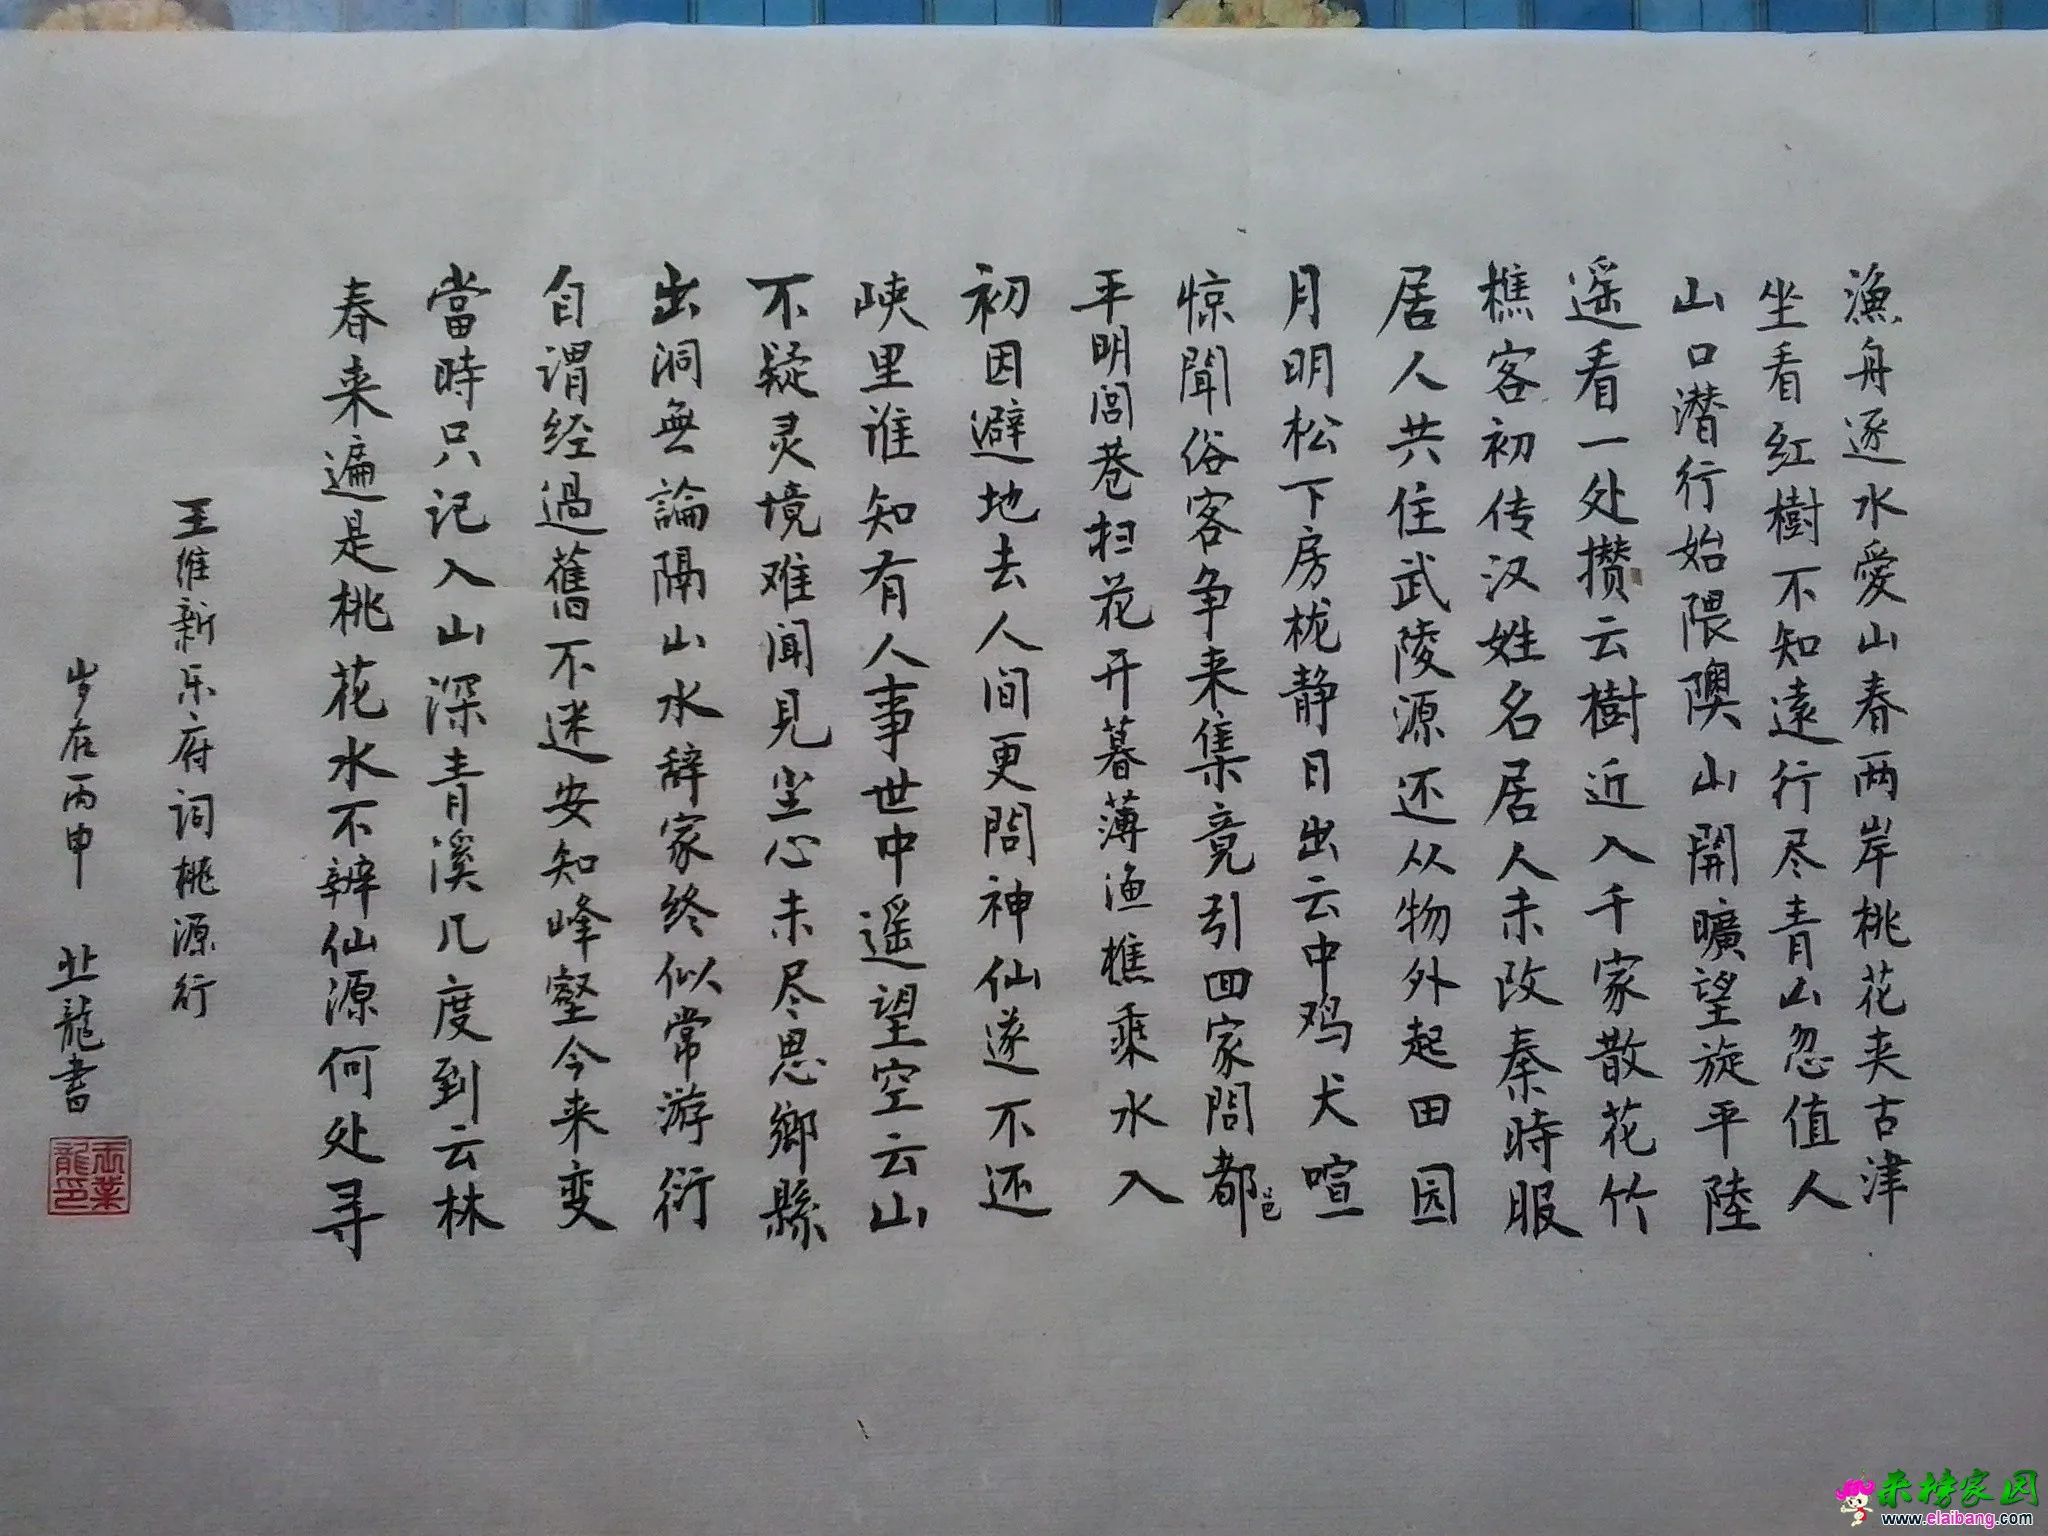 漁舟逐水愛山春两岸桃花夹古津
坐看红樹不知遠行尽青山忽值人
山口潜行始隈隩山開曠望旋平陸
遥看一处攒云樹近入千家散花竹
樵客初传汉姓名居人未改秦時服
居人共住武陵源还从物外起田园
月明松下房栊静日出云中鸡犬喧
惊聞俗客争来集竟引回家問都邑
平明闾巷扫花开暮薄渔樵乘水入
初因避地去人间更問神仙遂不还
峡里谁知有人事世中遥望空云山
不疑灵境难闻见尘心未尽思鄉縣
出洞無論隔山水辞家终似常游衍
自谓经過舊不迷安知峰壑今来变
當時只记入山深青溪几度到云林
春来遍是桃花水不辨仙源何处寻
王维新乐府词桃源行
岁在丙申 业龍書
来榜家园
www.elaibang.com